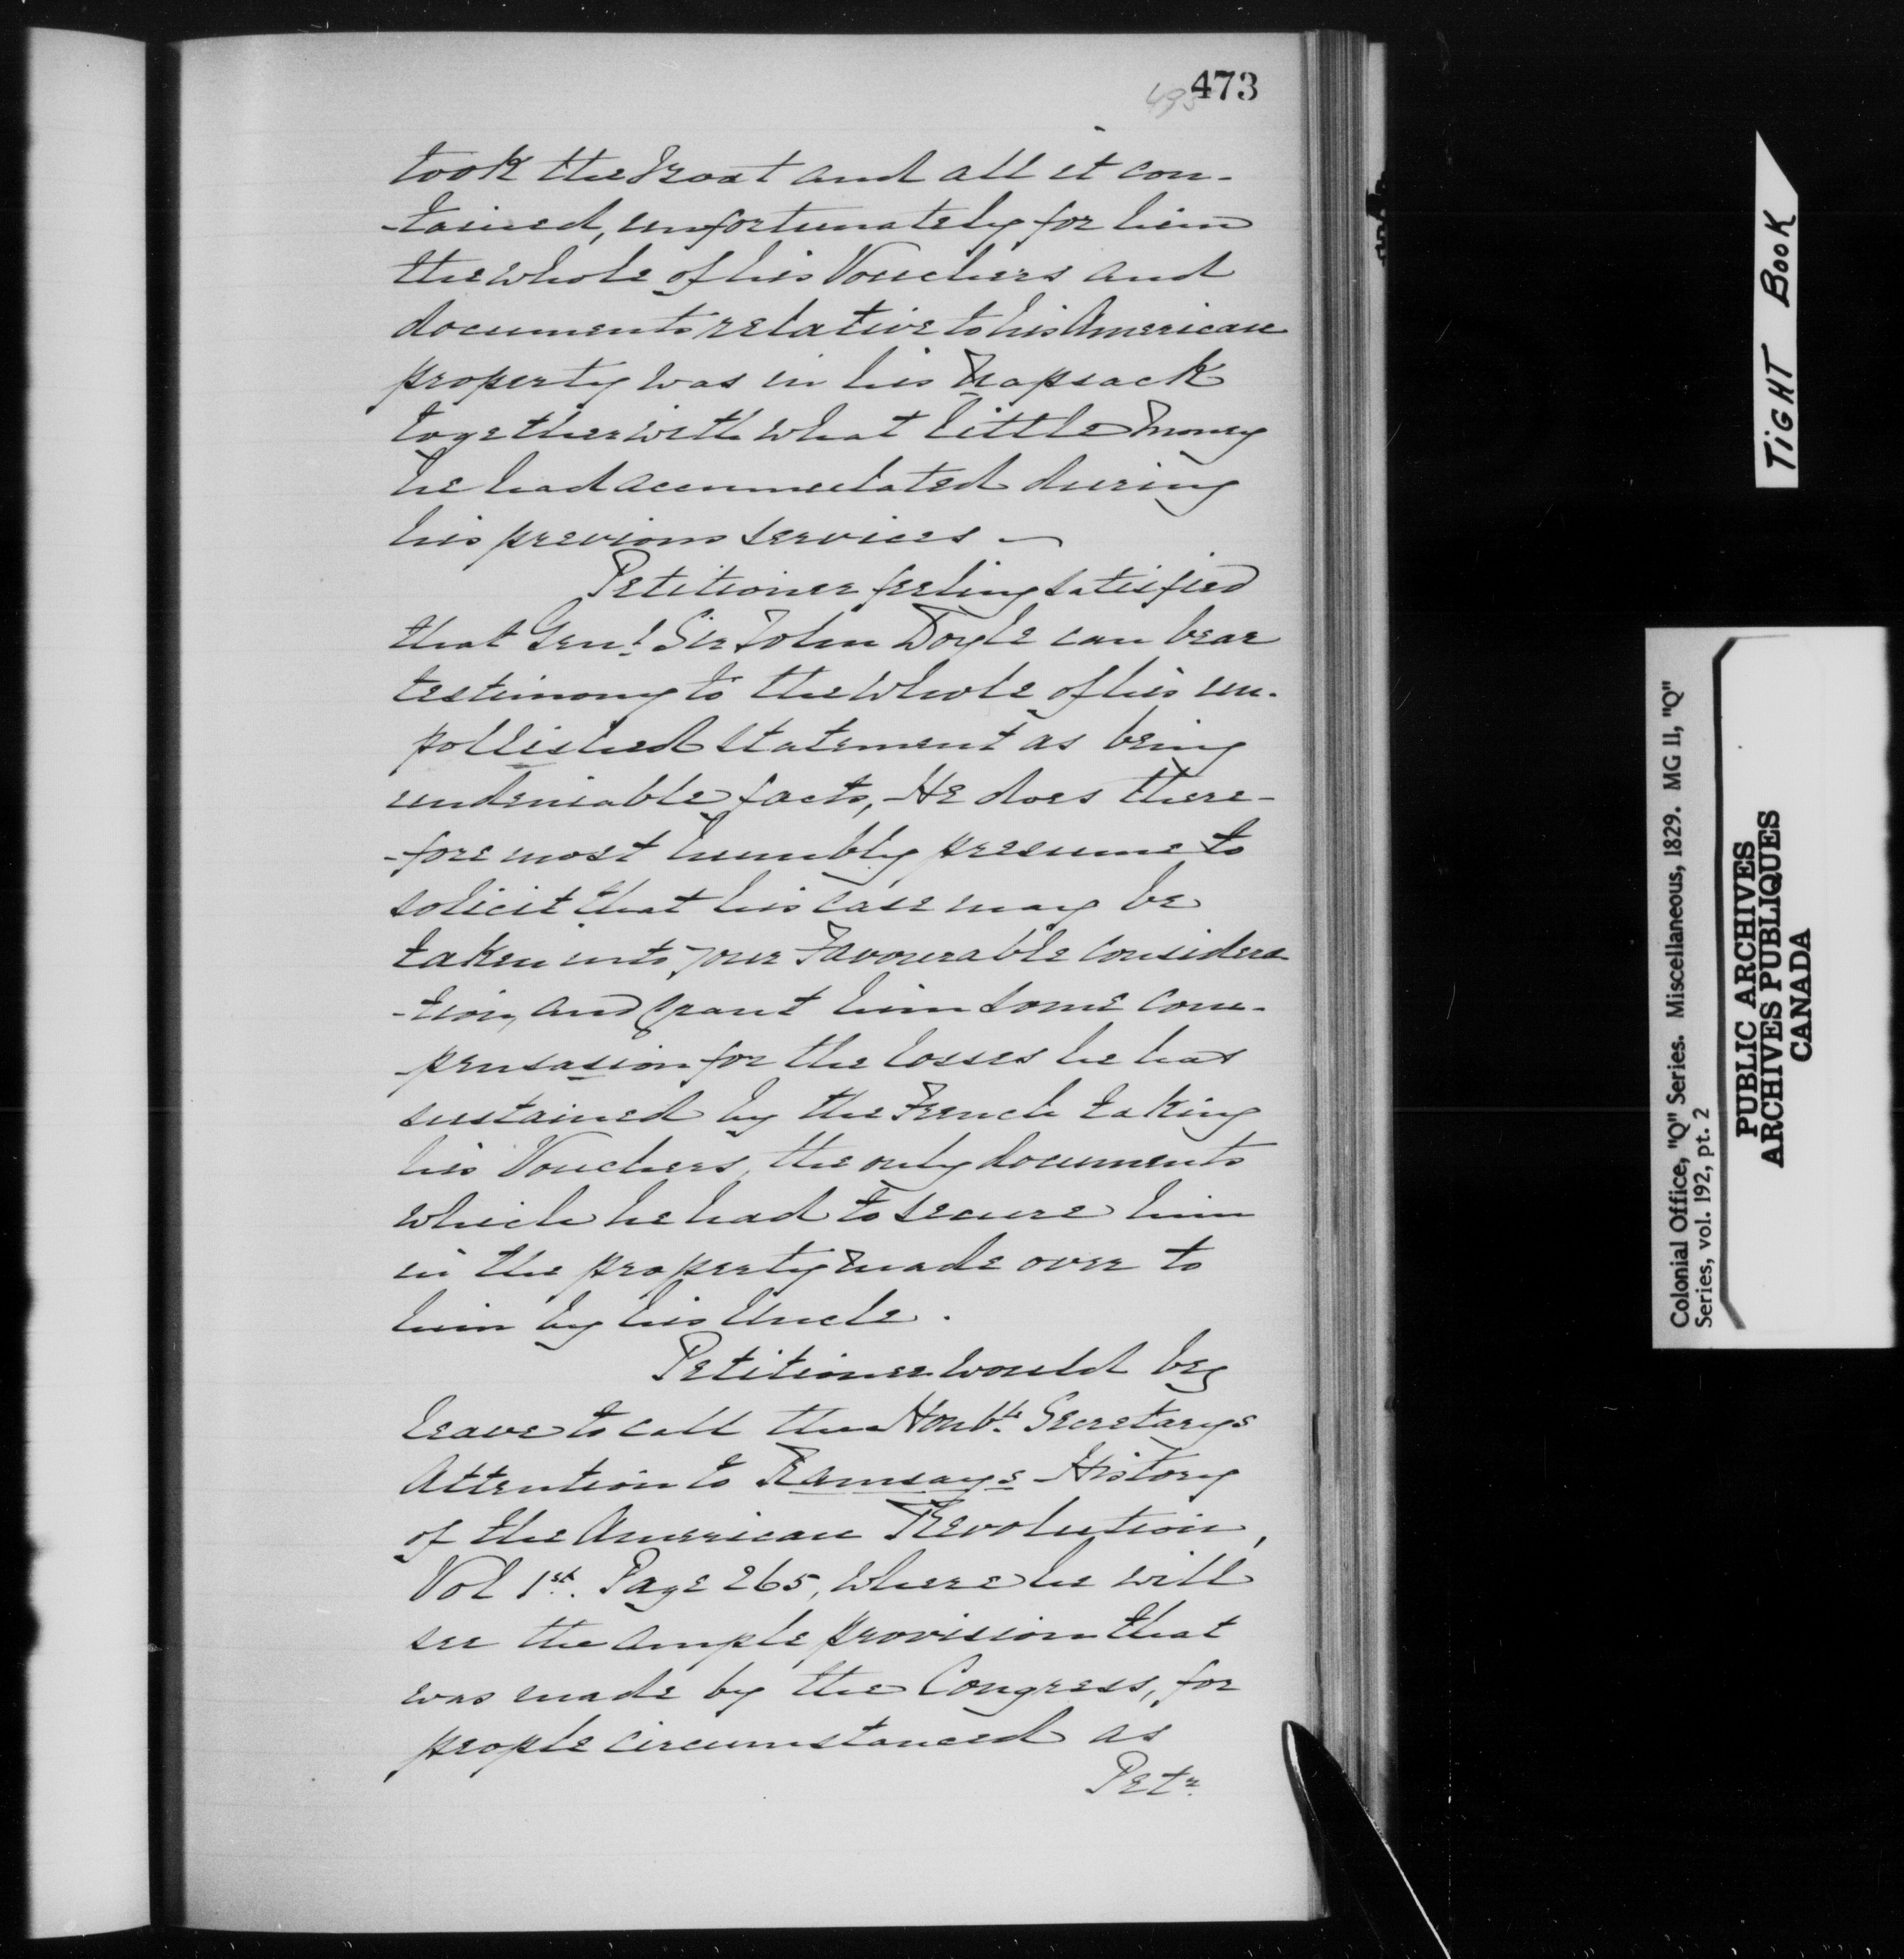 473
495
took the Boat and all it con-
-tained, unfortunately for him
the whole of his Vouchers and
documents relative to his American
property was in his Knapsack
together with what little money
he had accumulated during
his previous services -
Petitioner feeling satisfied
that Genl. Sir John Doyle can bear
testimony to the whole of his un-
pollished statement as being
undeniable facts, - He does there-
-fore most humbly presume to
solicit that his case may be
taken into your Favourable considera
-tion, and grant him some com-
-pensasion for the losses he has
sustained by the French taking
his Vouchers, the only documents
which he had to secure him
in the property made over to
him by his Uncle.
Petitioner would beg
leave to call the Honble. Secretarys
Attention to Ramsays History
of the American Revolution,
Vol 1st. Page 265, where he will
see the ample provision that
was made by the Congress, for
people circumstanced as
Petr.
TIGHT BOOK
Colonial Office, "Q" Series. Miscellaneous, 1829. MG 11, "Q"
Series, vol. 192, pt. 2
PUBLIC ARCHIVES
ARCHIVES PUBLIQUES
CANADA